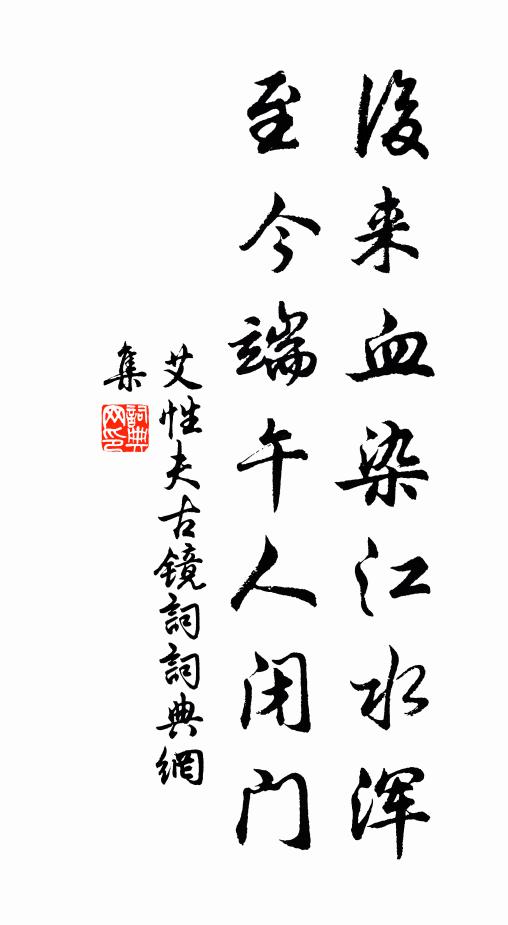 後来血染江水浑
至今端午人闭门
艾性夫古镜詞詞典網
集
詞典
网印